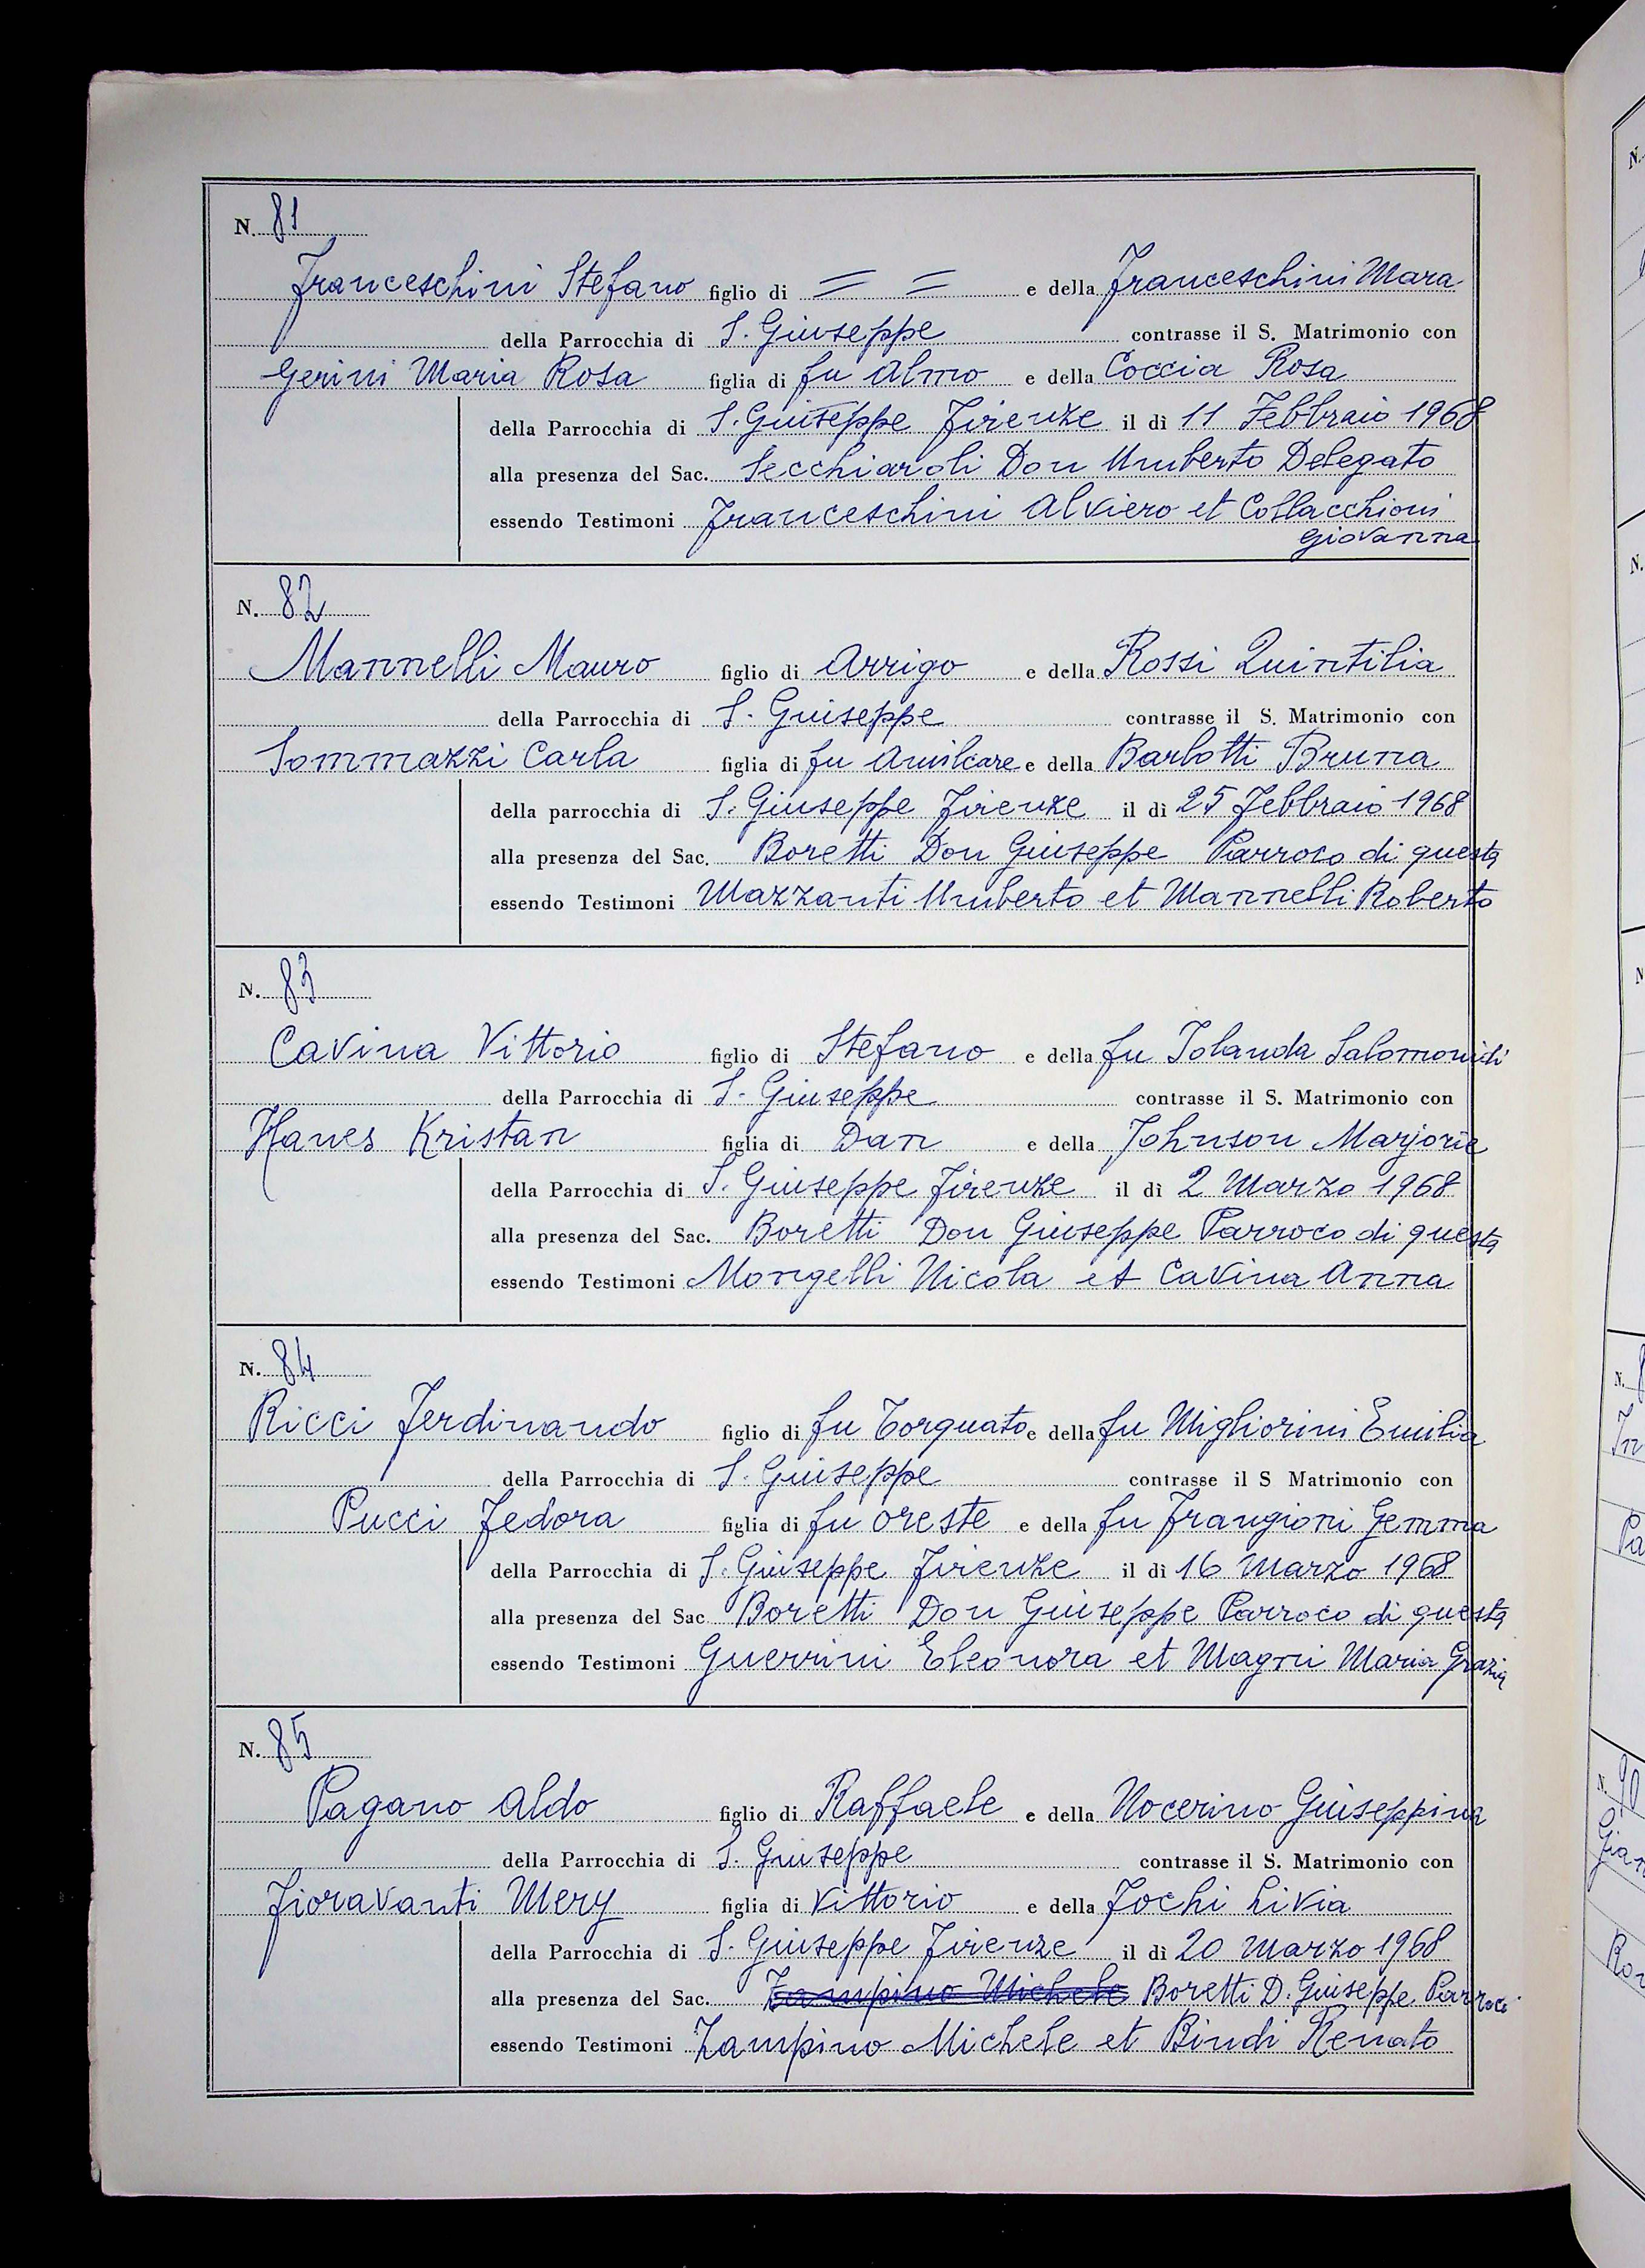 N. 81
Franceschini Stefano figlio di = = e della Franceschini Mara
della Parrocchia di S. Giuseppe contrasse il S. Matrimonio con
Gerini Maria Rosa figlia di fu Almo e della Coccia Rosa
della Parrocchia di S. Giuseppe Firenze il dì 11 Febbraio 1968
alla presenza del Sac. Secchiaroli Don Umberto Delegato
essendo Testimoni Franceschini Alviero et Collacchioni
Giovanna
N. 82
Mannelli Mauro figlio di Arrigo e della Rossi Quintilia
della Parrocchia di S. Giuseppe contrasse il S. Matrimonio con
Sommazzi Carla figlia di fu Amilcare e della Barlotti Bruna
della parrocchia di S. Giuseppe Firenze il dì 25 Febbraio 1968
alla presenza del Sac. Boretti Don Giuseppe Parroco di questa
essendo Testimoni Mazzanti Umberto et Mannelli Roberto
N. 83
Cavina Vittorio figlio di Stefano e della fu Iolanda
della Parrocchia di S. Giuseppe contrasse il S. Matrimonio con
Hanes Kristan figlia di Dan e della Johnson Marjorie
della Parrocchia di S. Giuseppe Firenze il dì 2 Marzo 1968
alla presenza del Sac. Boretti Don Giuseppe Parroco di questa
essendo Testimoni Mongelli Nicola et Cavina Anna
N. 84
Ricci Ferdinando figlio di fu Torquato e della fu Migliorini Emilia
della Parrocchia di S. Giuseppe contrasse il S Matrimonio con
Pucci Fedora figlia di fu Oreste e della fu Frangioni Gemma
della Parrocchia di S. Giuseppe Firenze il dì 16 Marzo 1968
alla presenza del Sac Boretti Don Giuseppe Parroco di questa
essendo Testimoni Guerrini Eleonora et Magni Maria Grazia
N. 85
Pagano Aldo figlio di Raffaele e della Nocerino Giuseppina
della Parrocchia di S. Giuseppe contrasse il S. Matrimonio con
Fioravanti Mery figlia di Vittorio e della Fochi Livia
della Parrocchia di S. Giuseppe Firenze il dì 20 Marzo 1968
alla presenza del Sac. Zampino Michele Boretti D. Giuseppe Parroco
essendo Testimoni Zampino Michele et Bindi Renato